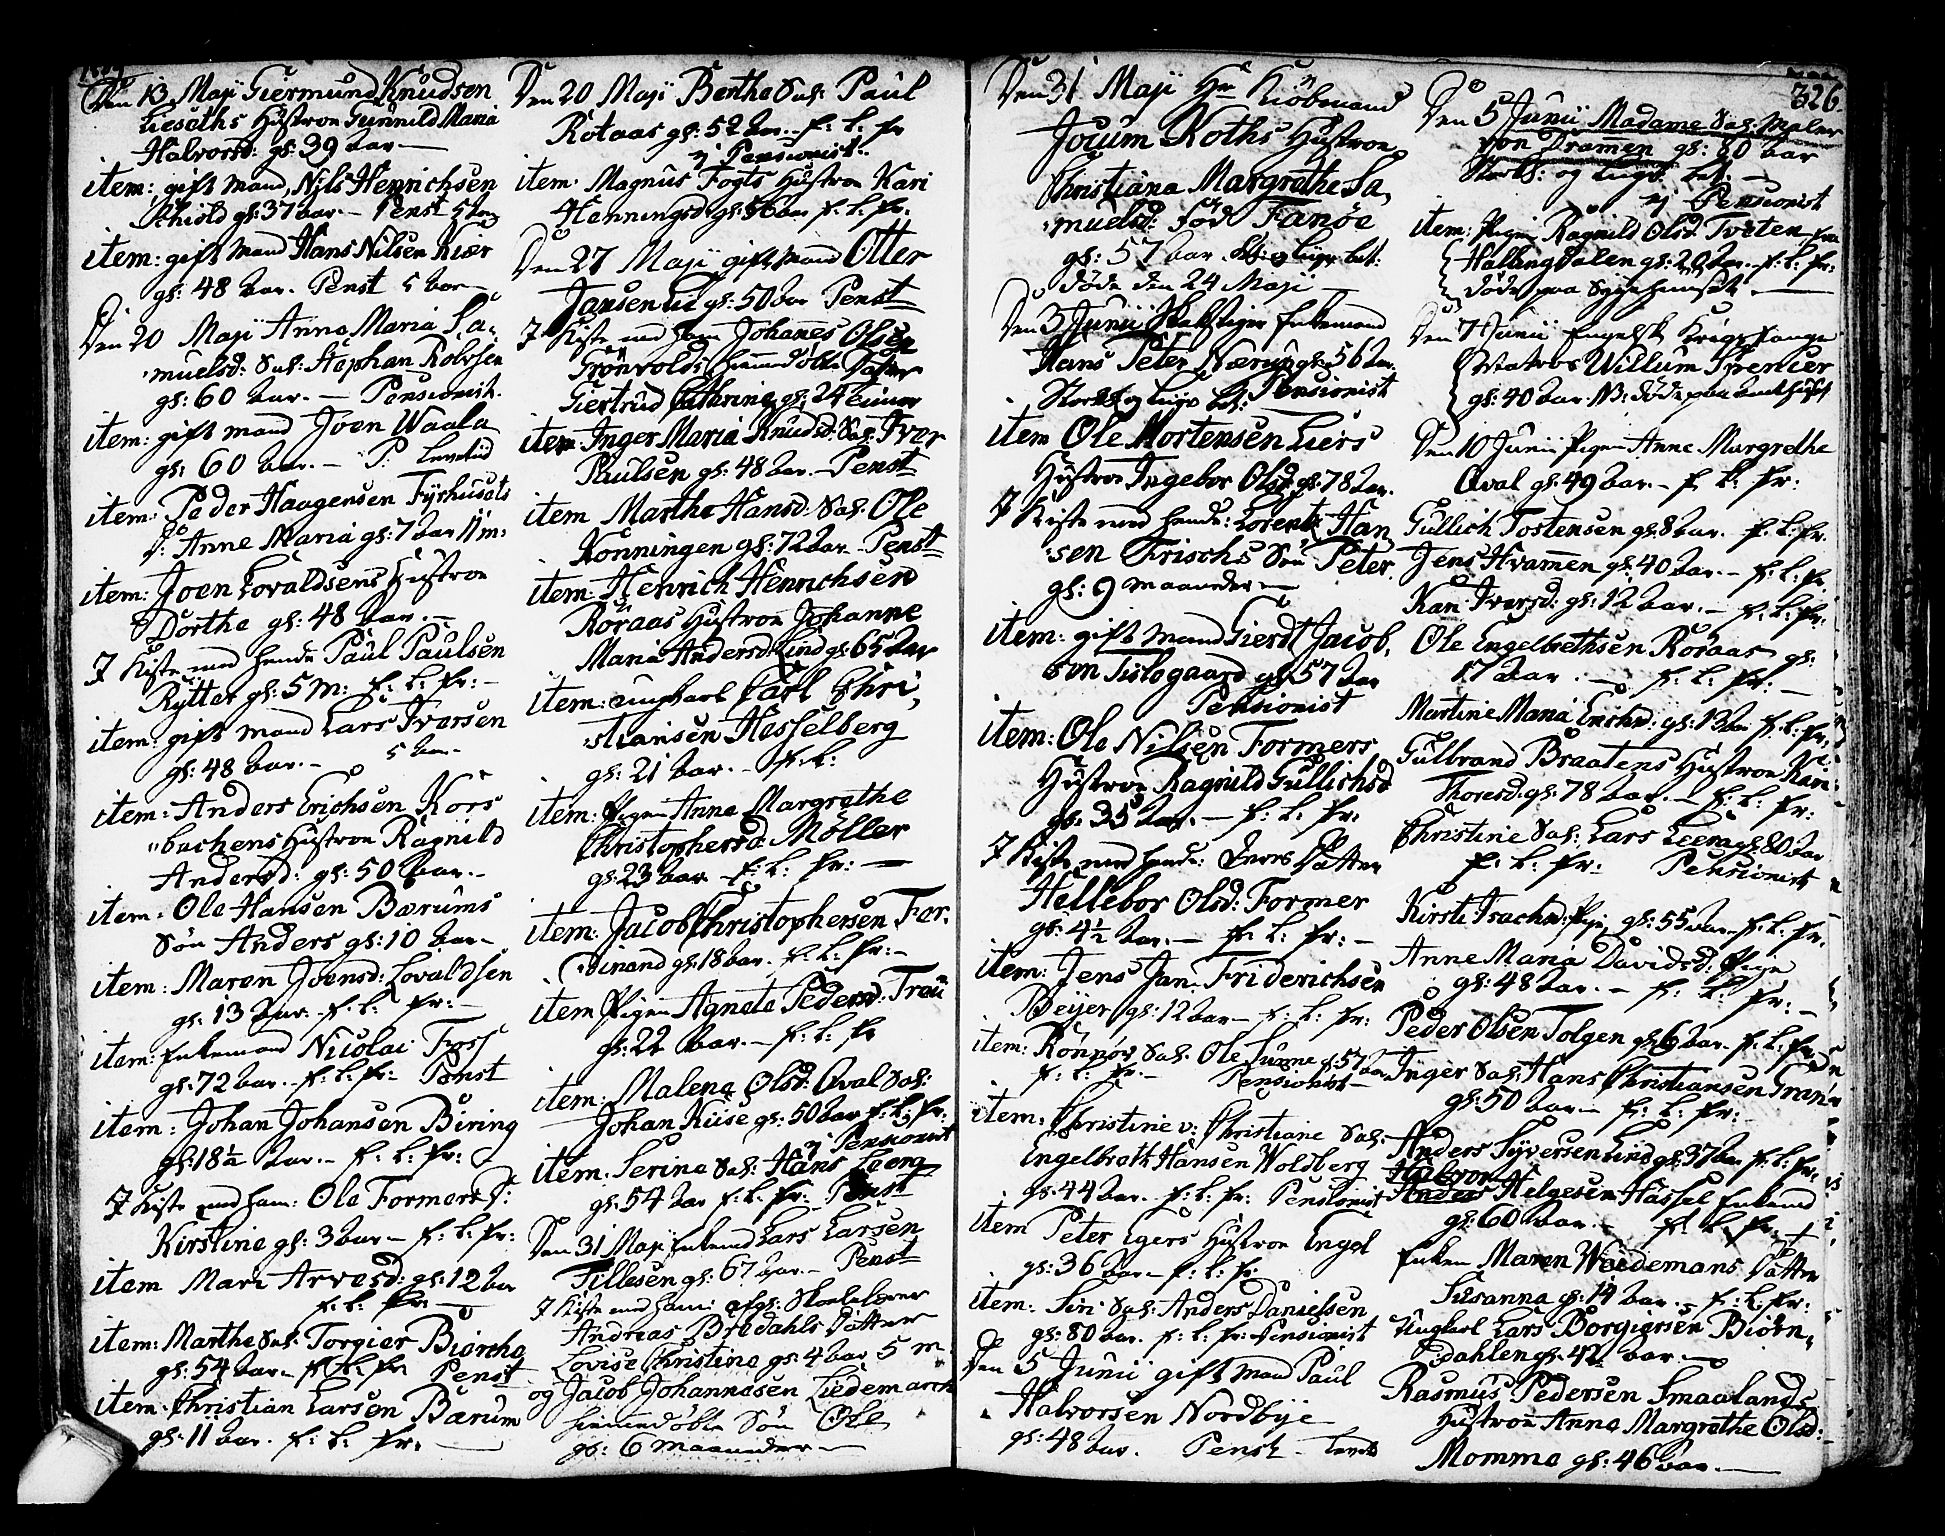 1809
Den 13 Maji Giermund Knudsen
Liesæths Hustroe Gunnild Maria
Halvorsd: gl: 39 aar —
item: gift Mand, Nils Henrichsen
Schiold gl: 37 aar. — Penst 5 aar
item: gift Mand Hans Nilsen Kiær
gl: 48 aar. Penst 5 aar —
Den 20 Maji Anna Maria Sa,
muelsd: Sal: Stephan Rolvsen
gl: 60 aar. — Pensionist.
item: gift mand Joen Waala
gl: 60 aar. — P.
item: Peder Haagensen Fyrhusets
D: Anne Maria gl: 7 aar 11 m:
item: Joen Lovaldsens Hustroe
Dorthe gl: 48 aar. —
J Kiste med hende Paul Paulsen
Rytter gl: 5 M: f: L: fr: —
item: gift mand Lars Iversen
gl: 48 aar. — 5 aar.
item: Anders Erichsen Kors
bachens Hustroe Ragnild
Andersd: gl: 50 aar. —
item: Ole Hansen Bærums
Søn Anders gl: 10 aar —
item: Maren Joensd: Lovaldsen
gl: 13 aar. f: L: fr: —
item: Enkemand Nicolai Foss
gl: 72 aar. f: L: fr: — Penst
item: Johan Johansen Biring
gl: 18½ aar. — f: L: fr:
J Kiste med ham: Ole Formers D:
Kirstine gl: 3 aar — f: L: fr:
item Mari Arvesd: gl: 12 aar
f: L: fr: —
item: Marthe Sal: Torgier Biercke
gl: 54 aar — f: L: fr Penst
item: Christian Larsen Bærum
gl: 11 aar. f: L: fr: —
Den 20 Maji Berthe Sal: Paul
Rotaas gl: 52 aar. — f: L: fr
Pensionist.
item: Magnus Fogts Hustroe Kari
Henningsd: gl: 56 aar f: L: fr:
Den 27 Maji gift Mand Otter
Jansen Lie gl: 50 aar Penst
J Kiste med ham Johannes Olsen
Grönvolds hiemmedøbte Datter
Giertrud Cathrine gl: 24 timer
item Inger Maria Knudsd: Sal: Iver
Paulsen gl: 48 aar — Penst
item Marthe Hansd: Sal: Ole
Konningen gl: 72 aar — Penst
item: Henrich Henrichsen
Röraas Hustroe Johanne
Maria Andersd: Lind gl: 65 aar
item: ungkarl Carl Chri,
stiansen Hesselberg
gl: 21 aar. — f: L:
item: Pigen Anna Margrethe
Christophersd: Möller
gl: 23 aar — f: L: fr: —
item: Jacob Christophersen Fer,
dinand gl: 18 aar. f: L: fr: —
item Pigen Agnete Pedersd: Trau
gl: 22 aar. — f: L: fr
item: Malena Olsd: Qval Sal:
Johan Kuse gl: 50 aar f: L: fr:
Pensionist
item: Serina Sal: Hans Leerg
gl: 54 aar f: L: fr: Penst
Den 31 Maji Enkemd Lars Larsen
Tillesen gl: 67 aar. — Penst
J Kiste med ham: afg: Skolelærer
Andreas Bredahls Datter
Lovise Christine gl: 4 aar 5 m
og Jacob Johannesen Ziedemarck
hiemmedøbte Søn Ole
gl: 6 maaneder —
Den 31 Maji Hr Kiöbmand
Jocum Koths Hustroe
Christiana Margrethe Sa,
muelsd: Föd Fanöe
gl: 57 aar. bet:
døde den 24 Maji —
Den 3 Junii Enkemand
Hans Peter Nærup gl: 56 aar.
Pensionist
item Ole Mortensen Liers
Hustroe Ingebor Olsd gl: 78 aar.
J Kiste med hende: Lorentz Han
sen Frischs Søn Peter
gl: 9 maaneder —
item: gift Mand Gierdt Jacob,
sen Tislegaard gl: 57 aar
Pensionist
item: Ole Nilsen Formers
Hustroe Ragnild Gullichsd
gl: 35 aar. — f: L: fr:
J Kiste med hende: Deres Datter
Hellebor Olsd: Former
gl: 4½ aar. — f: L: fr: —
item: Jens Jan: Friderichsen
Beijer gl: 12 aar — f: L: fr:
item: Rönnöv Sal: Ole Lurne gl: 57 aar
f: L: fr. — Pensionist —
item: Christine v: Christiane Sal:
Engelbreth Hansen Woldberg
gl: 44 aar. f: L: fr: Pensionist
item Peter Egers Hustroe Engel
gl: 36 aar — f: L: fr
item: Siri Sal: Anders Danielsen
gl: 80 aar. f: L: fr: Pensionist
Den 5 Junii gift mand Paul
Halvorsen Nordbye
gl: 48 aar. Penst —
326
Den 5 Junii Madame Sal: Maler
von Dramen gl: 80 aar
Pensionist
item: Pigen Ragnild Olsd Tveten fra
Hallingdalen gl: 20 aar — f: L: fr:
døde paa Sygehuuset —
Den 7 Junii Engelsk Krigsfange
Matros Willum Spencer
gl: 40 aar. NB: døde paa
Den 10 Junii Pigen Anne Margrethe
Qval gl: 49 aar. — f: L: fr:
Gullich Tostensen gl: 8 aar. f: L: fr.
Jens Hvamen gl: 40 aar. — f: L: fr
Kari Iversd: gl: 12 aar. — f: L: fr:
Ole Engelbrethsen Röraas gl:
17 aar. — f: L: fr: —
Martine Maria Erichsd: gl: 13 aar f: L: fr:
Gulbrand Braatens Hustroe Kari
Thoresd: gl: 78 aar. — f: L: fr:
Christine Sal: Lars Leera gl: 80 aar
f: L: fr: Pensionist
Kirsti Isachsd: Pige gl: 55 aar — f: L: fr.
Anne Maria Davidsd: Pige
gl: 48 aar. — f: L: fr: —
Peder Olsen Tolgen gl: 6 aar. f: L: fr
Inger Sal: Hans Christiansen Gran
gl: 50 aar. — f: L: fr:
Anders Syversen Lind gl: 37 aar f: L: fr:
Halvor
Anders Helgesen Hassel Enkemd
gl: 60 aar. — f: L: fr: +
Enken Maren Weidemans Datter
Susanna gl: 14 aar. — f: L: fr:
Ungkarl Lars Borgiersen Biörn,
dahlen gl: 42 aar. —
Rasmus Pedersen Smaalands
Hustroe Anne Margrethe Olsd:
Momme gl: 46 aar. —